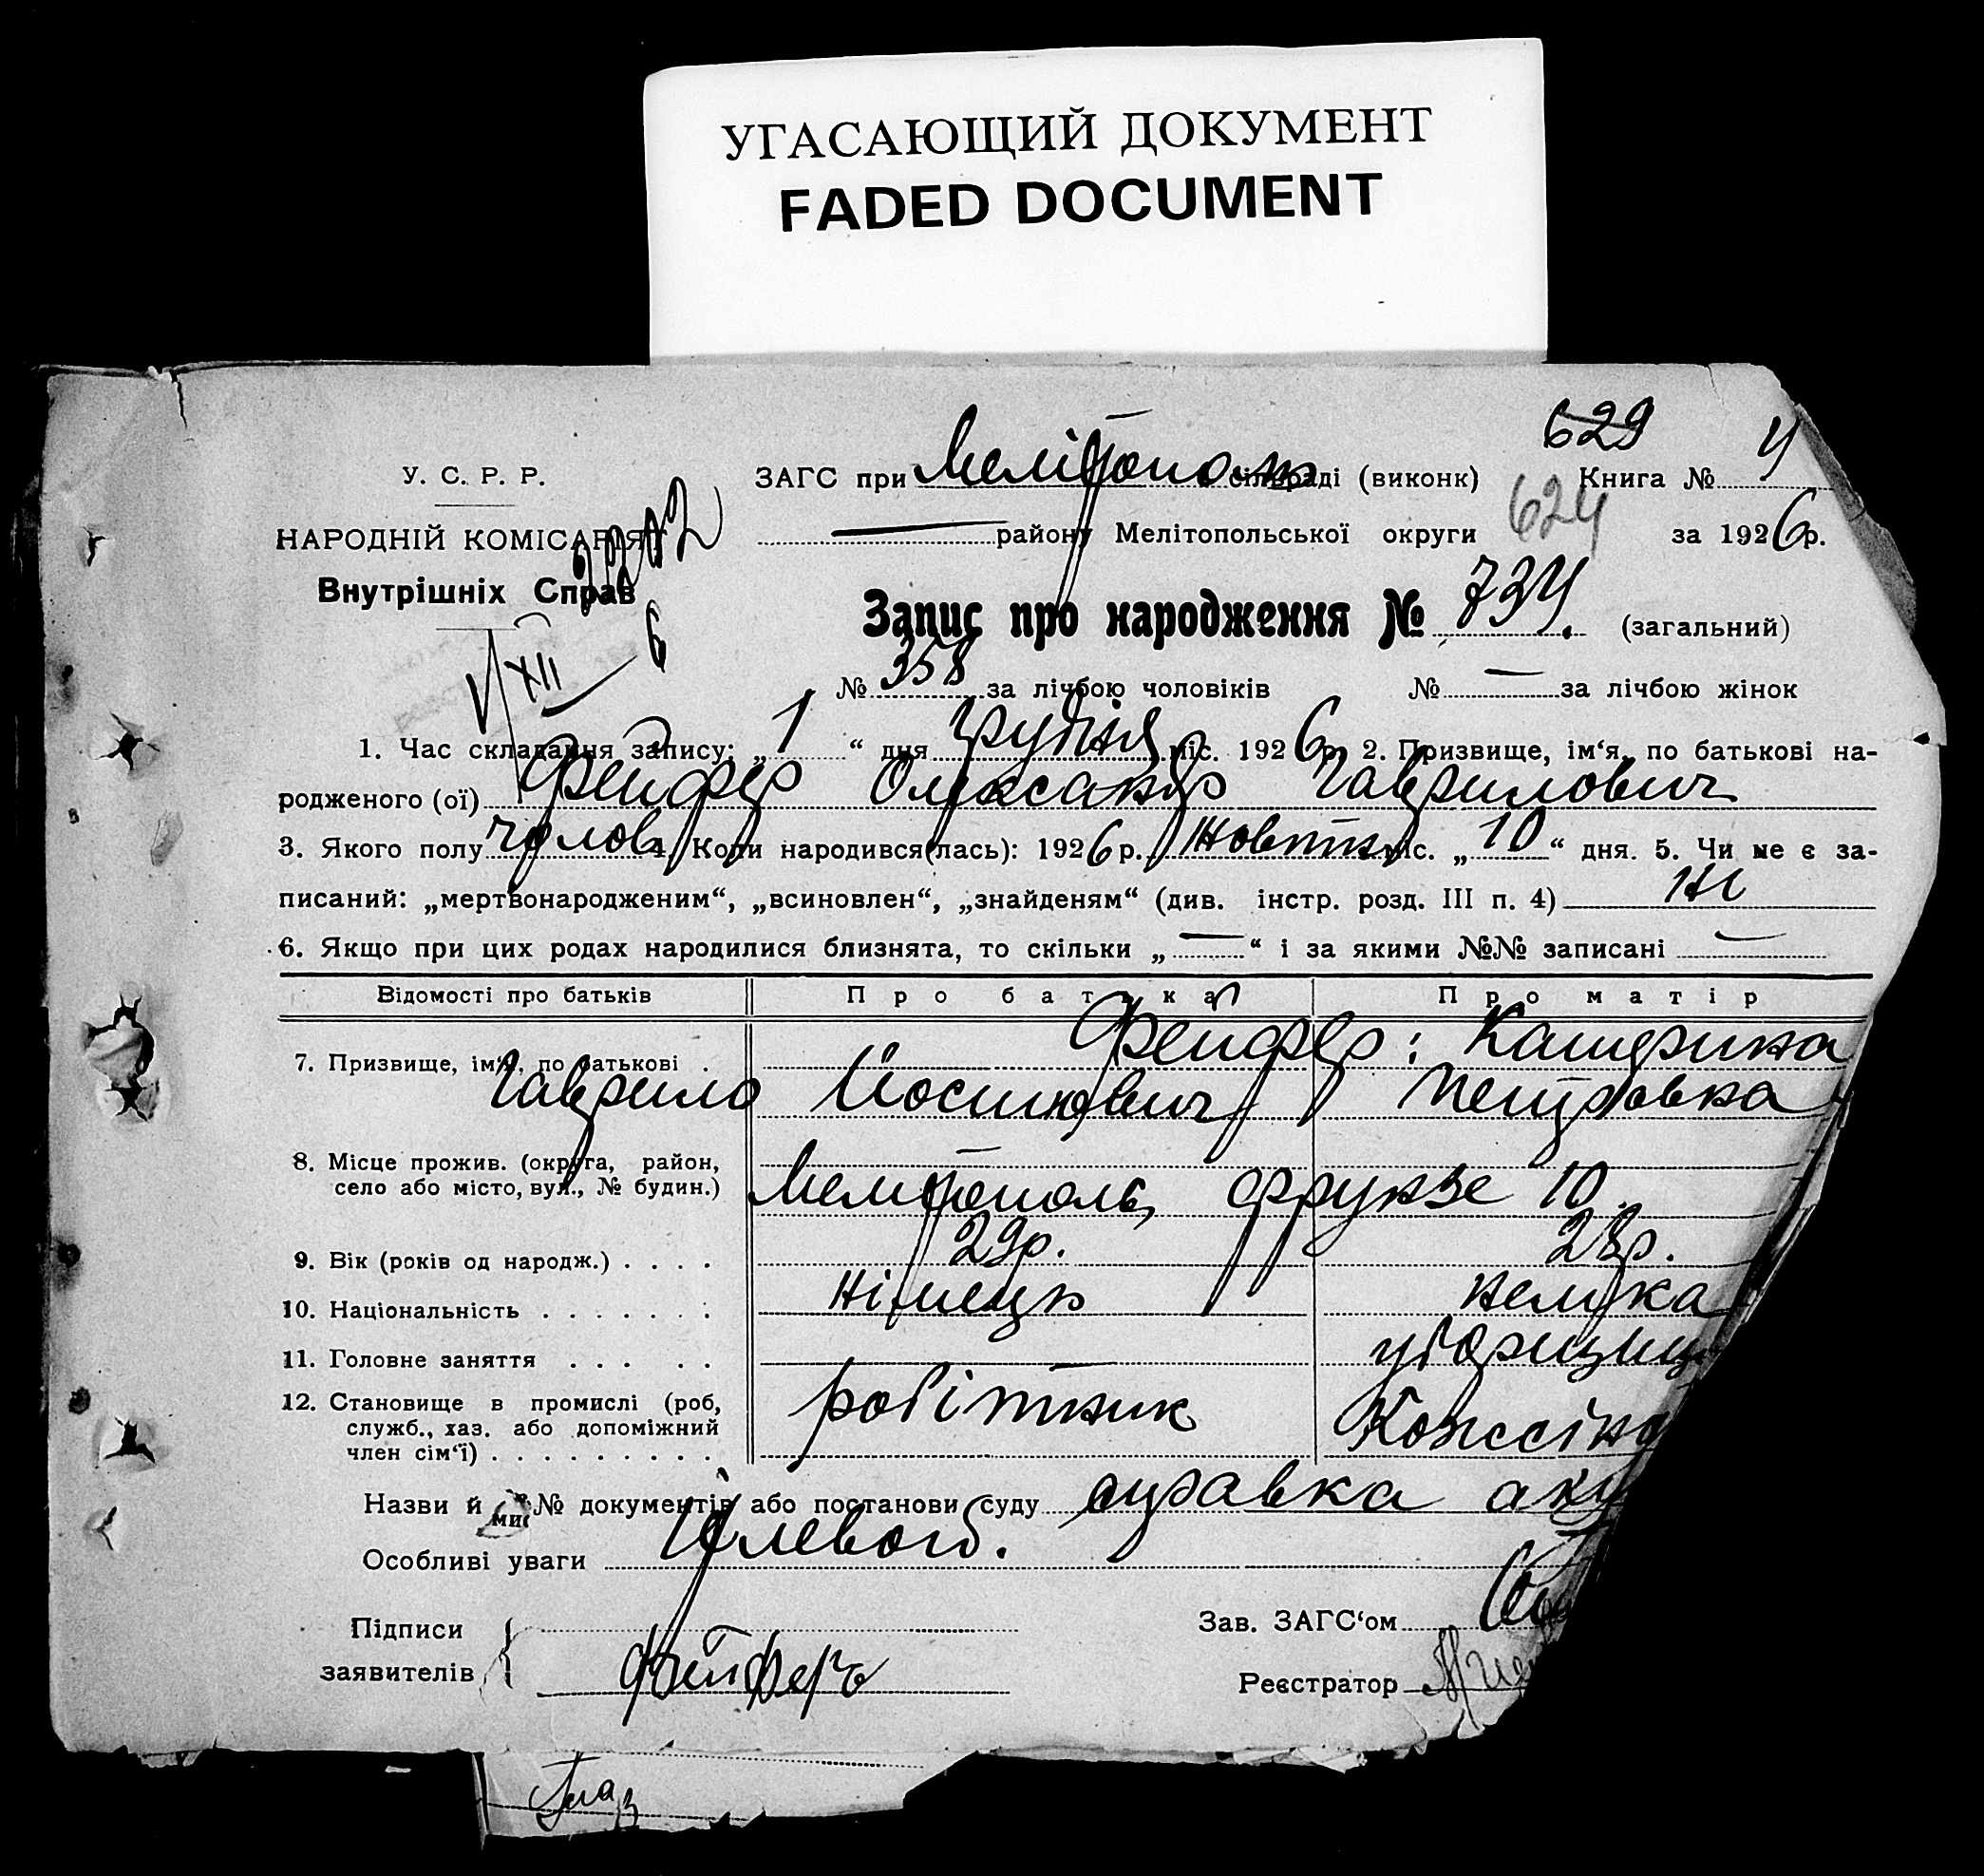 УГАСАЮЩИЙ ДОКУМЕНТ
FADED DOCUMENT
629
У. С. Р. Р.
ЗАГС при Мелітополь сільраді (виконк) Книга № 4
624
НАРОДНІЙ КОМІСАРІЯТ
— району Мелітопольської округи за 1926 р.
Внутрішніх Справ
Запис про народження № 734. (загальний)
1/XII — 6
№ 358 за лічбою чоловіків № — за лічбою жінок
1. Час складання запису: „ 1 “ дня грудня міс. 1926 р. 2. Призвище, ім‘я, по батькові на-
родженого (ої) Фейфер Олександр Гаврилович
3. Якого полу чолов 4. Коли народився(лась): 1926 р. Жовтня міс. „ 10 “ дня. 5. Чи не є за-
писаний: „мертвонародженим“, „всиновлен“, „знайденям“ (див. інстр. розд. III п. 4) ні
6. Якщо при цих родах народилися близнята, то скільки „ — “ і за якими №№ записані —
Відомості про батьків Про батька Про матір
7. Призвище, ім‘я, по батькові . Фейфер: Катерина
Гаврило Йосипович Петровна
8. Місце прожив. (округа, район,
село або місто, вул., № будин.) Мелітополь, Фрунзе 10.
9. Вік (років од народж.) . . . . 29р. 28р.
10. Національність . . . . . . . німець немка
11. Головне заняття . . . . . —
12. Становище в промислі (роб,
служб., хаз. або допоміжний
член сім‘ї) . . . . . . . . . робітник
Назви й №№ документів або постанови суду справка аку
Особливі уваги
Підписи
заявителів Фейферъ
Зав. ЗАГС‘ом
Реєстратор